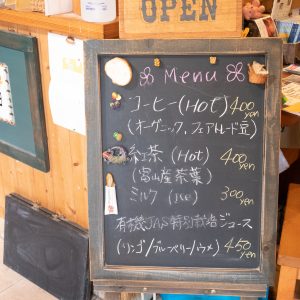 OPEN
Menu
コーヒー(Hot) 400 yen
(オーガニック、フェアトレード豆)
紅茶 (Hot) 400 yen
(富山産茶葉)
ミルク (Ice) 300 yen
有機JAS特別栽培ジュース
(リンゴ/ブルーベリー/ウメ) 450 yen